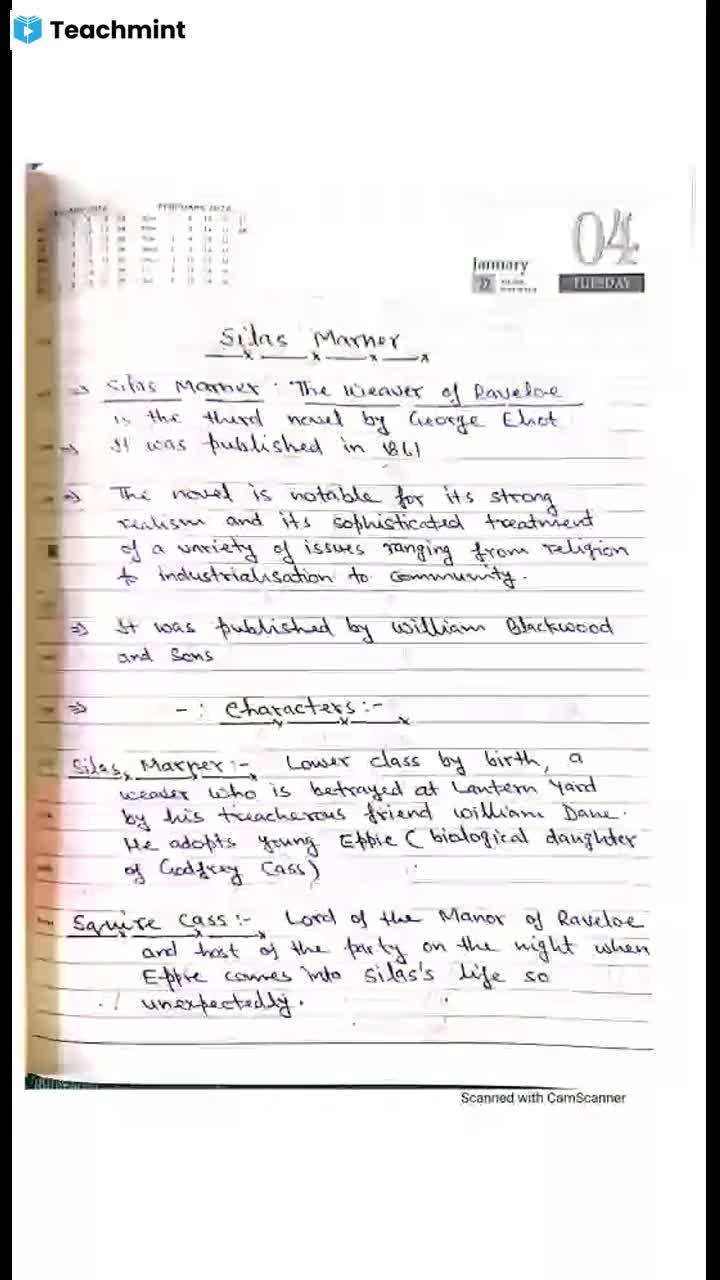 Teachmint
04
January
TUESDAY
Silas Marner
⇒ Silas Marner: The Weaver of Raveloe
is the third novel by George Eliot
⇒ It was published in 1861
⇒ The novel is notable for its strong
realism and its sophisticated treatment
of a variety of issues ranging from religion
to industrialisation to community.
⇒ It was published by William Blackwood
and Sons
⇒ -: Characters:-
Silas Marner:- Lower class by birth, a
weaver who is betrayed at Lantern Yard
by his treacherous friend William Dane.
He adopts young Eppie (biological daughter
of Godfrey Cass)
Squire Cass:- Lord of the Manor of Raveloe
and host of the party on the night when
Eppie comes into Silas's life so
unexpectedly.
Scanned with CamScanner